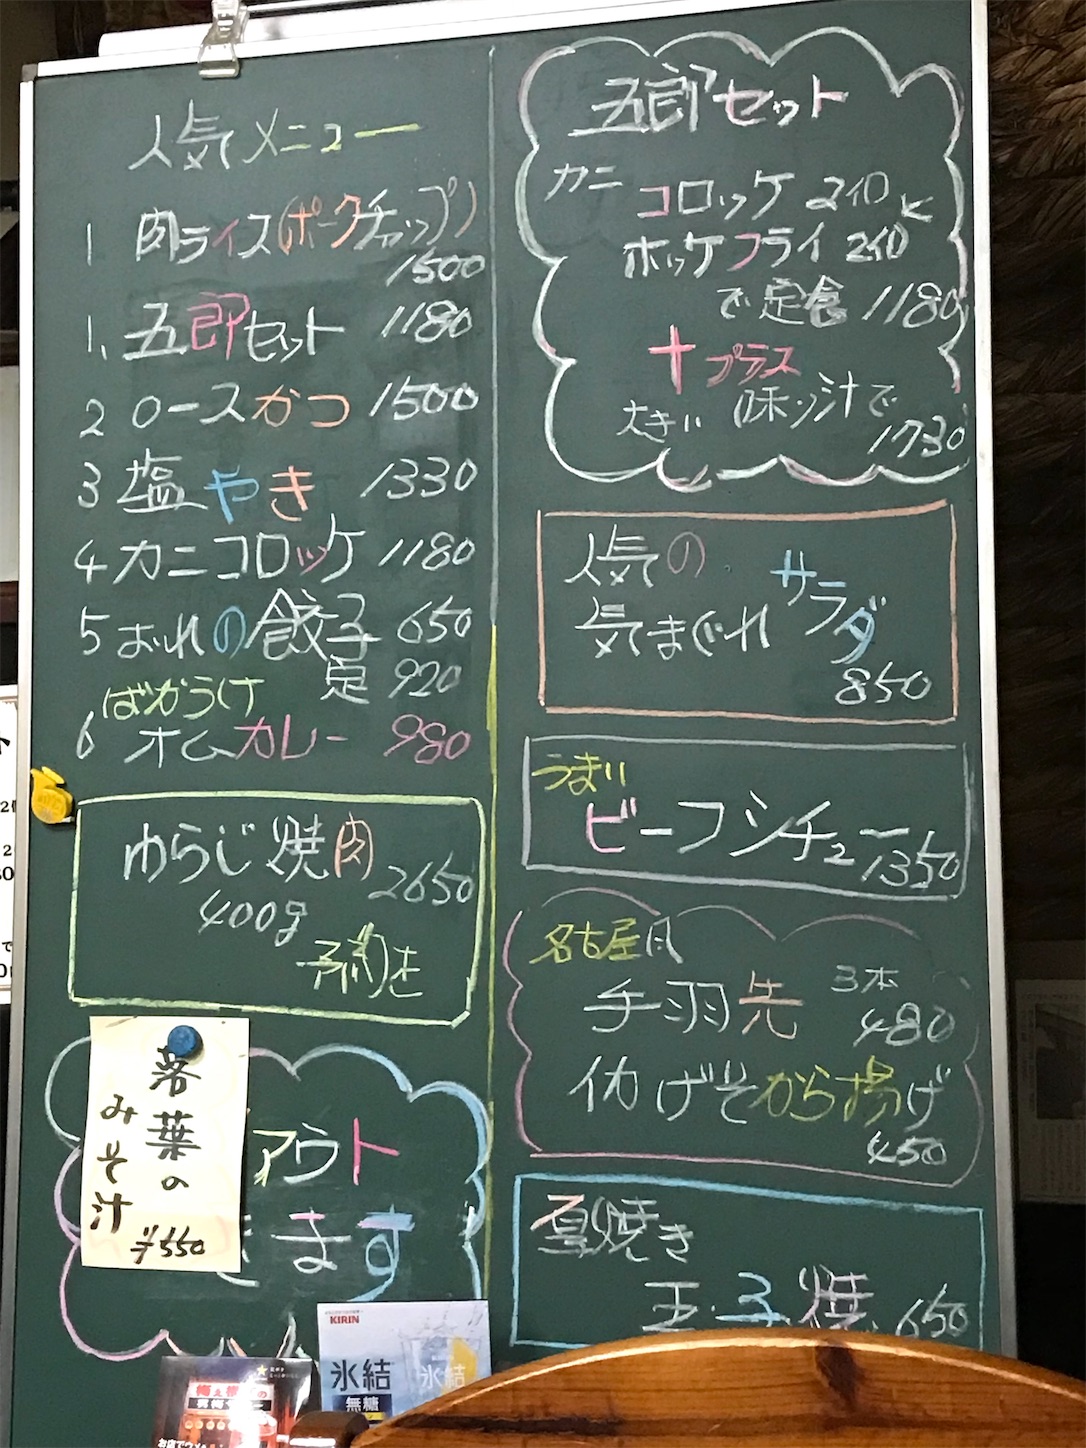 人気メニュー
1 肉ライス(ポークチャップ)
1500
1、五郎セット 1180
2 ロースかつ 1500
3 塩やき 1330
4 カニコロッケ 1180
5 おれの餃子 650
定 920
ばかうけ
6 オムカレー 980
わらじ焼肉 2650
400g
アウト
きます
落葉の
みそ汁
¥550
KIRIN
氷結
無糖
五郎セット
カニ
コロッケ 2個と
ホッケフライ 2個
で定食 1180
+プラス
大きい 味噌汁で
1730
人気の
気まぐれ サラダ
850
うまい
ビーフシチュー 1350
名古屋風
手羽先 3本
480
イカげそから揚げ
450
直焼き
玉子焼 650